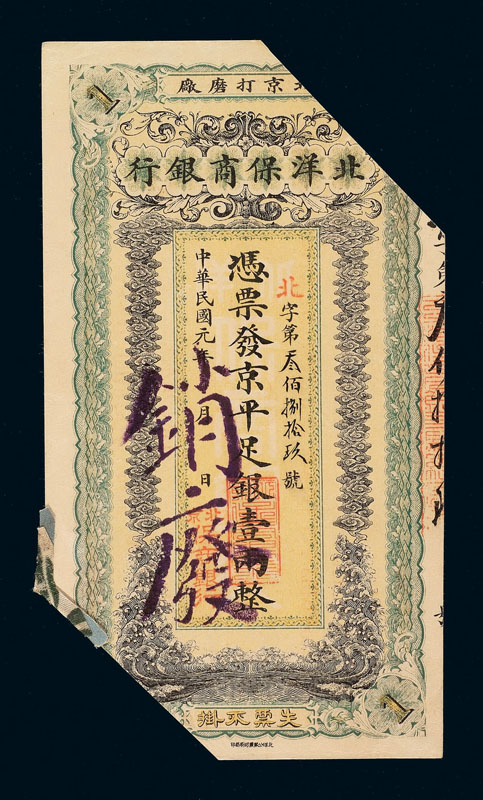 京打磨廠
1
北洋保商銀行
北字第叁佰捌拾玖號
憑票發京平足銀壹兩整
中華民國元年 月 日
銷廢
失票不掛
1